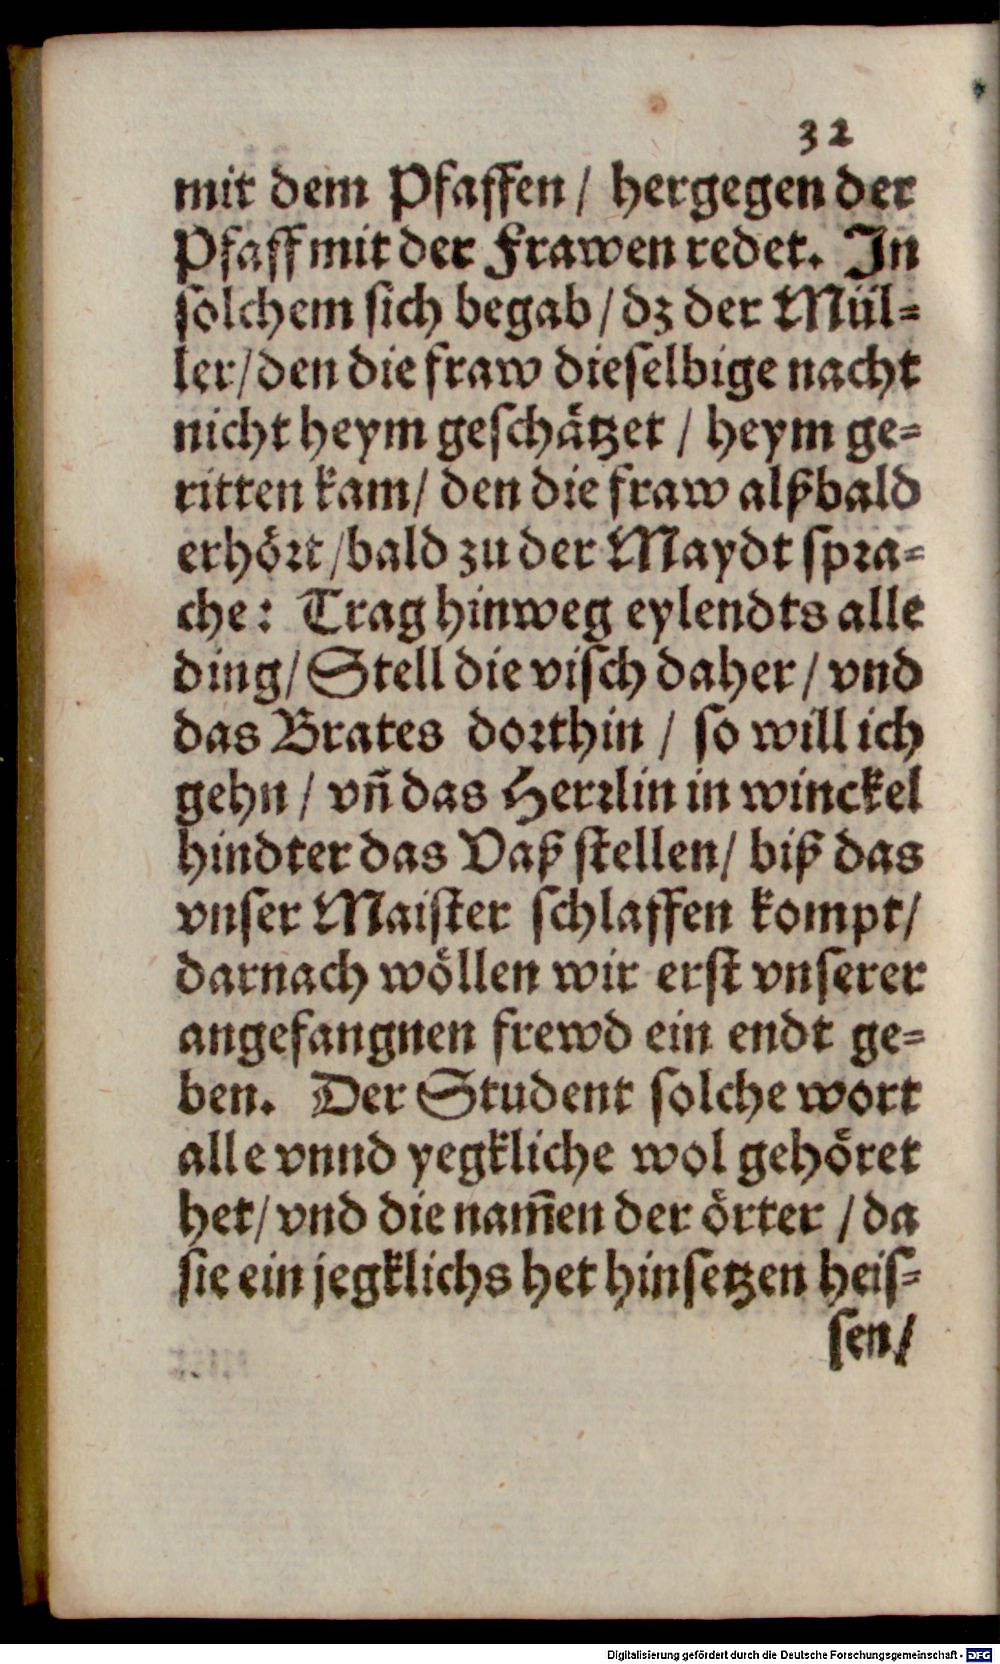 32
mit dem Pfaffen / hergegen der
Pfaff mit der Frawen redet. In
solchem sich begab / dz der Mül-
ler / den die fraw dieselbige nacht
nicht heym geschätzet / heym ge-
ritten kam / den die fraw alßbald
erhört / bald zu der Maydt spra-
che: Trag hinweg eylendts alle
ding / Stell die visch daher / vnd
das Brates dorthin / so will ich
gehn / vñ das Herrlin in winckel
hindter das Vaß stellen / biß das
vnser Maister schlaffen kompt /
darnach wöllen wir erst vnserer
angefangnen frewd ein endt ge-
ben. Der Student solche wort
alle vnnd yegkliche wol gehöret
het / vnd die nam̃en der örter / da
sie ein jegklichs het hinsetzen heis-
sen /
Digitalisierung gefördert durch die Deutsche Forschungsgemeinschaft - DFG